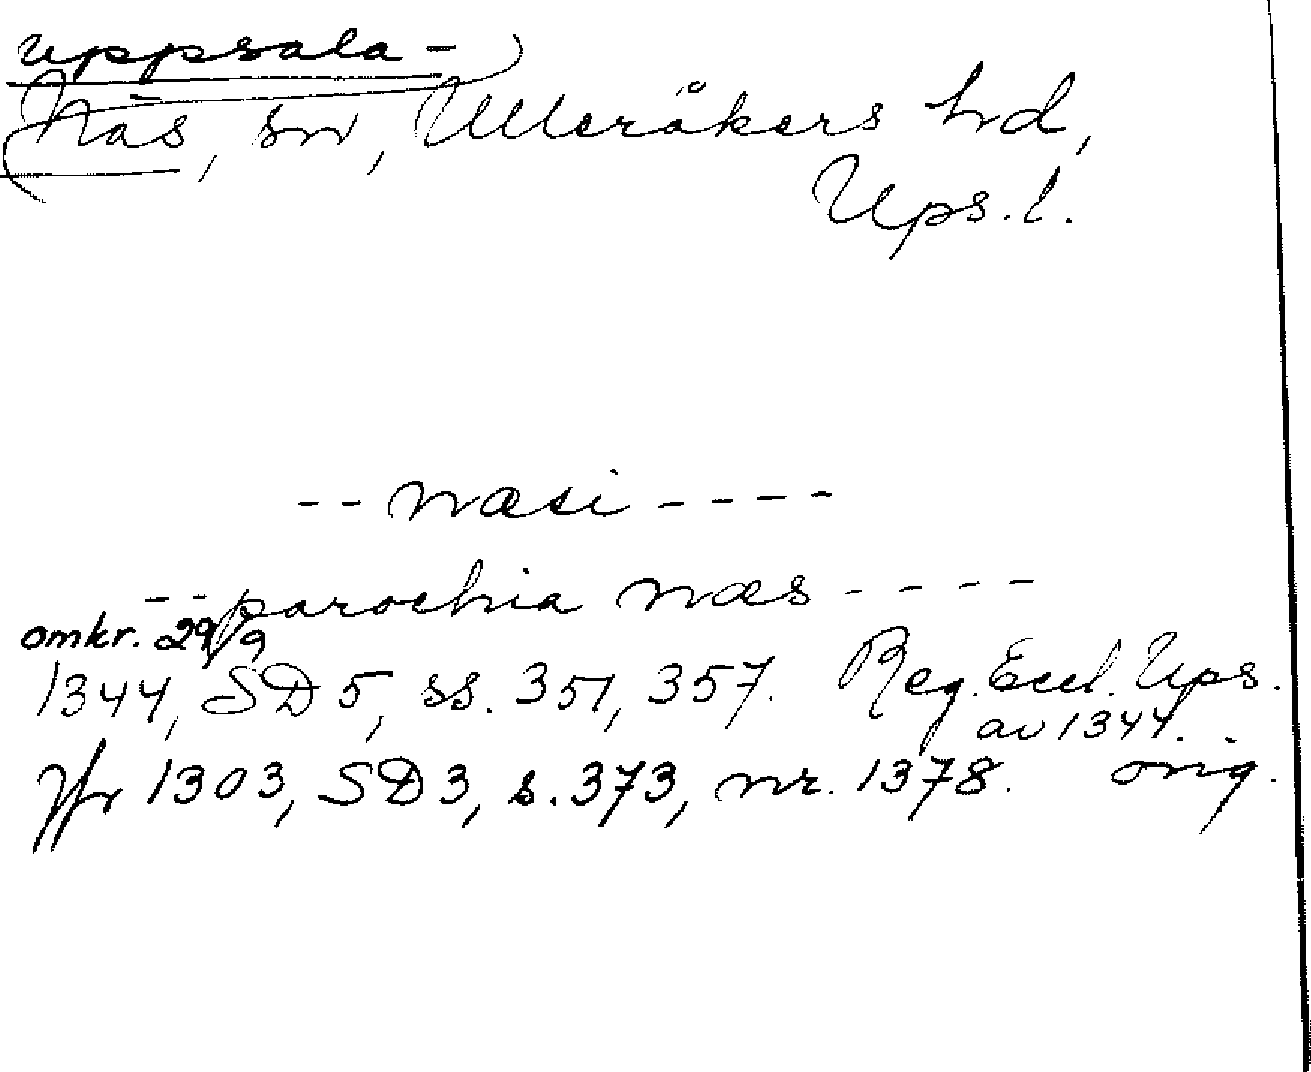 Uppsala-
Näs, sn, Ulleråkers hd,
Ups. l.
-- næsi ----
-- parochia næs ----
omkr. 29/9
1344, SD 5, ss. 351, 357. Reg. Eccl. Ups.
av 1344.
Jfr 1303, SD 3, s. 373, nr. 1378. orig.